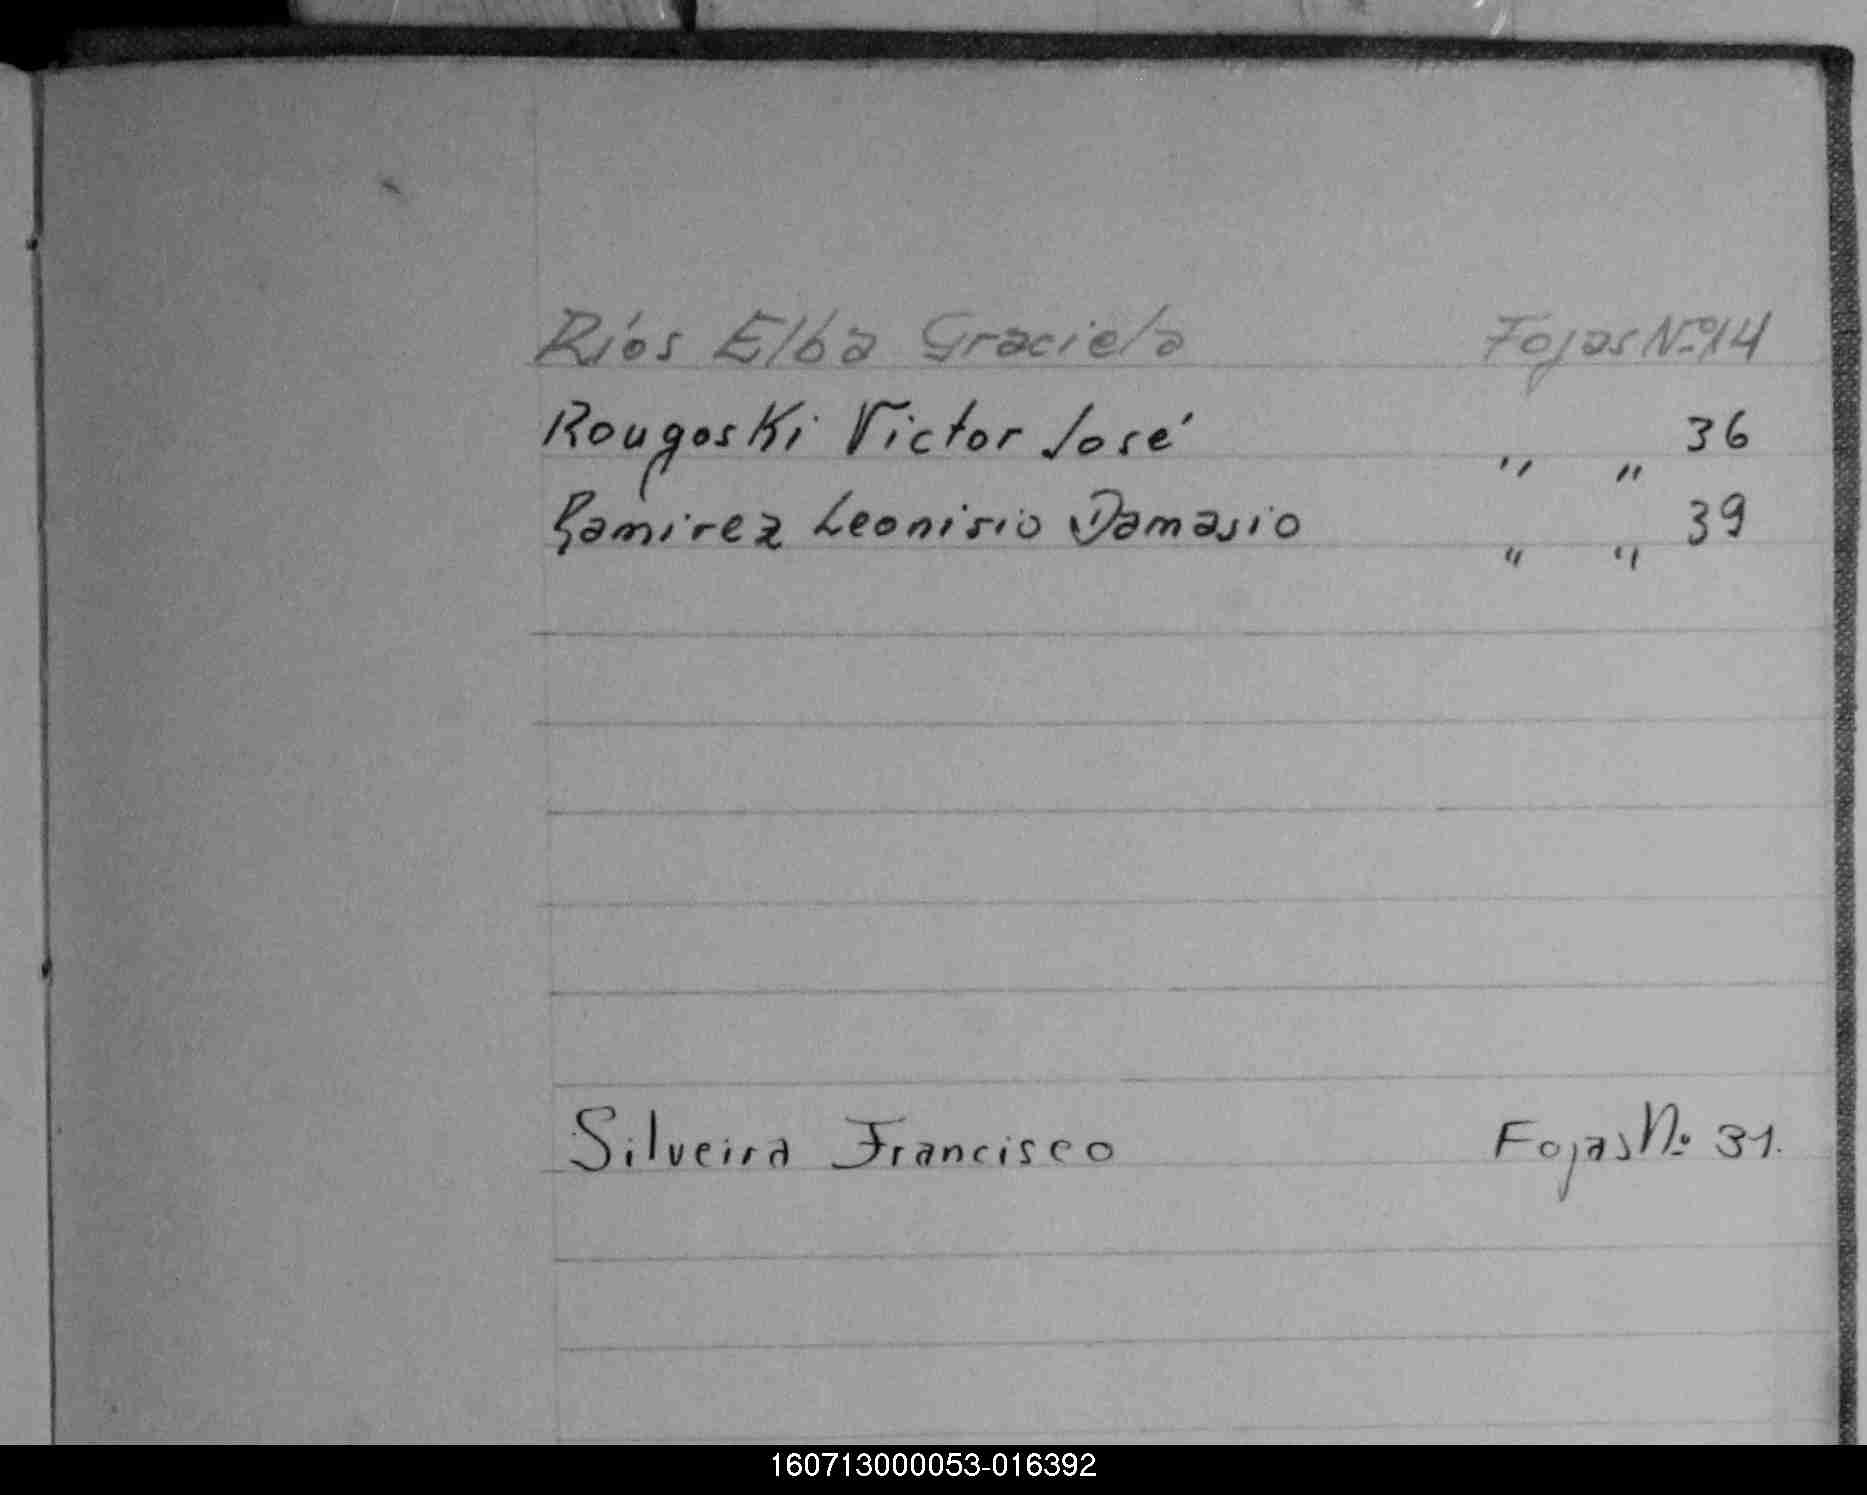 Ríos Elba Graciela Fojas Nº 14
Rougoski Victor José " " 36
Ramirez Leonisio Damasio " " 39
Silveira Francisco Fojas Nº 31.
160713000053-016392